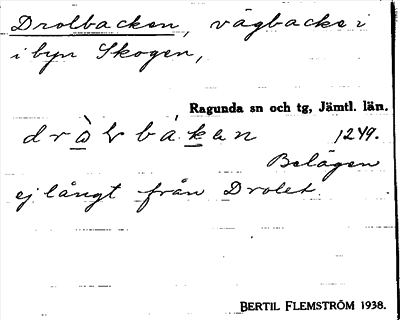 Drolbacken, vägbacke i
i byn Skogen,
Ragunda sn och tg, Jämtl. län.
1249.
Belägen
ej långt från Drolet.
BERTIL FLEMSTRÖM 1938.